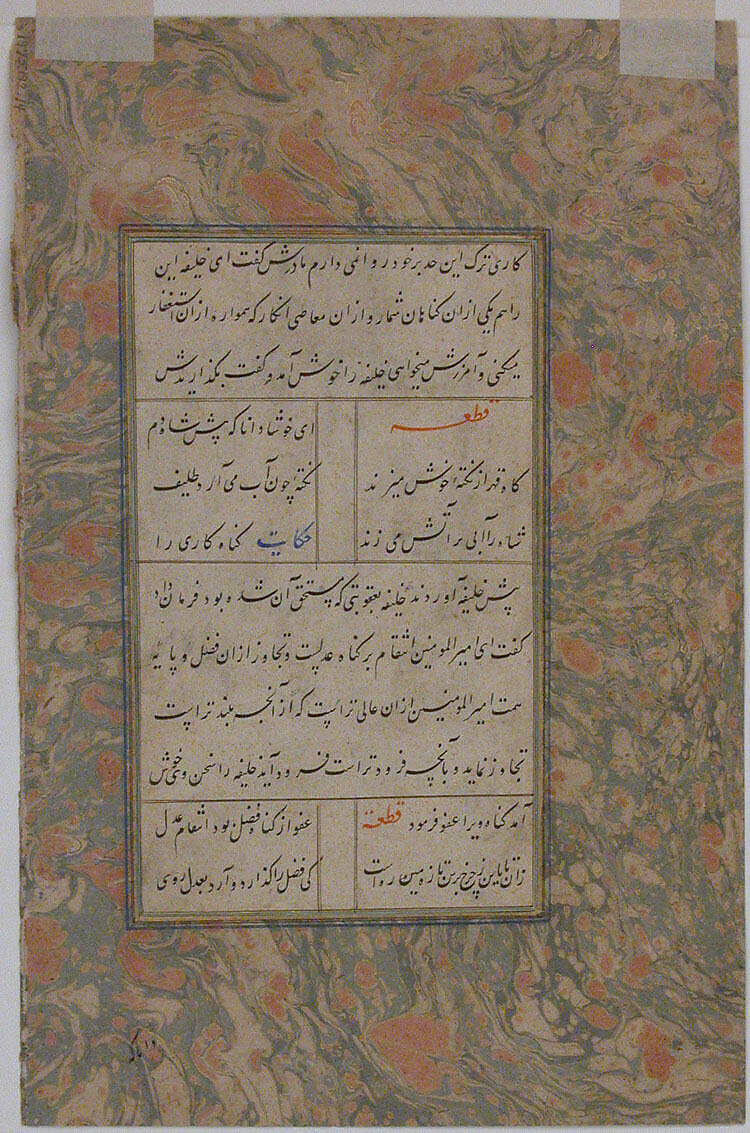 کاری ترک این حد بر خود روا نمی دارم مادرش گفت ای خلیفه این
را هم یکی ازان کناهان شمار و ازان معاصی انکار که همواره ازان استغفار
میکنی و آمرزش میخواهی خلیفه را خوش آمد و گفت بگذاریدش
قطعه
ای خوشا دانا که پیش شاه دم
گاه قهر از نکتهٔ خوش میزند
نکته چون آب می آرد لطیف
شاه را آبی بر آتش می زند
حکایت کناه کاری را
پیش خلیفه آوردند خلیفه بعقوبتی که مستحق آن شده بود فرمان داد
گفت ای امیرالمومنین انتقام بر کناه عدلست و تجاوز ازان فضل و پایه
همت امیرالمومنین ازان عالی ترست که از آنچه بلند ترست
تجاوز نماید و بآنچه فرود تر است فرود آید خلیفه را سخن وی خوش
آمد کناه ویرا عفو فرمود قطعه
عفو از کناه فضل بود انتقام عدل
زان تا باین ز چرخ برین تا زمین رهست
کی فضل را گذارد و آرد بعدل روی